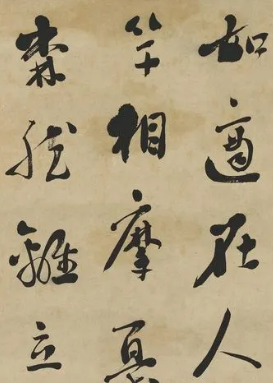 如適在人
竿相摩
森然離立